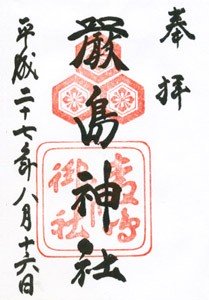 奉拝
厳島神社
平成二十七年八月十六日
厳島
御社